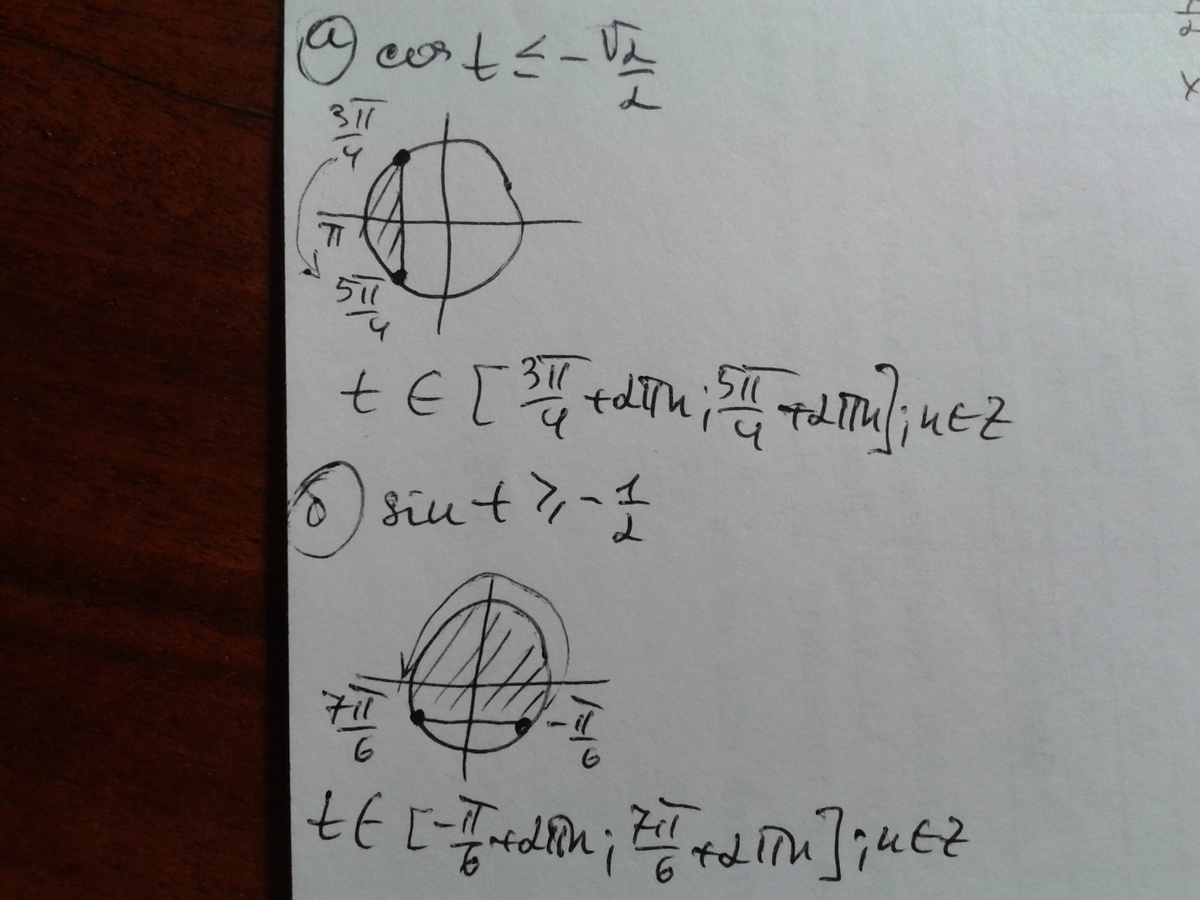 а) cos t ≤ -√2/2
3π/4
π
5π/4
t ∈ [3π/4 + 2πn; 5π/4 + 2πn]; n ∈ Z
б) sin t ⩾ -1/2
7π/6
-π/6
t ∈ [-π/6 + 2πn; 7π/6 + 2πn]; n ∈ Z